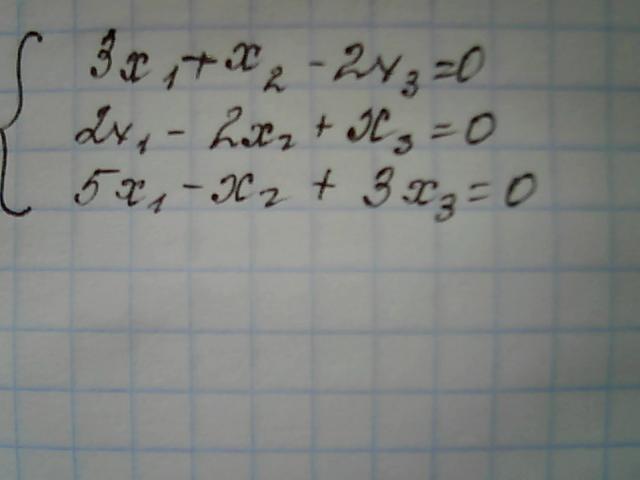 3x₁+x₂-2x₃=0
2x₁-2x₂+x₃=0
5x₁-x₂+3x₃=0